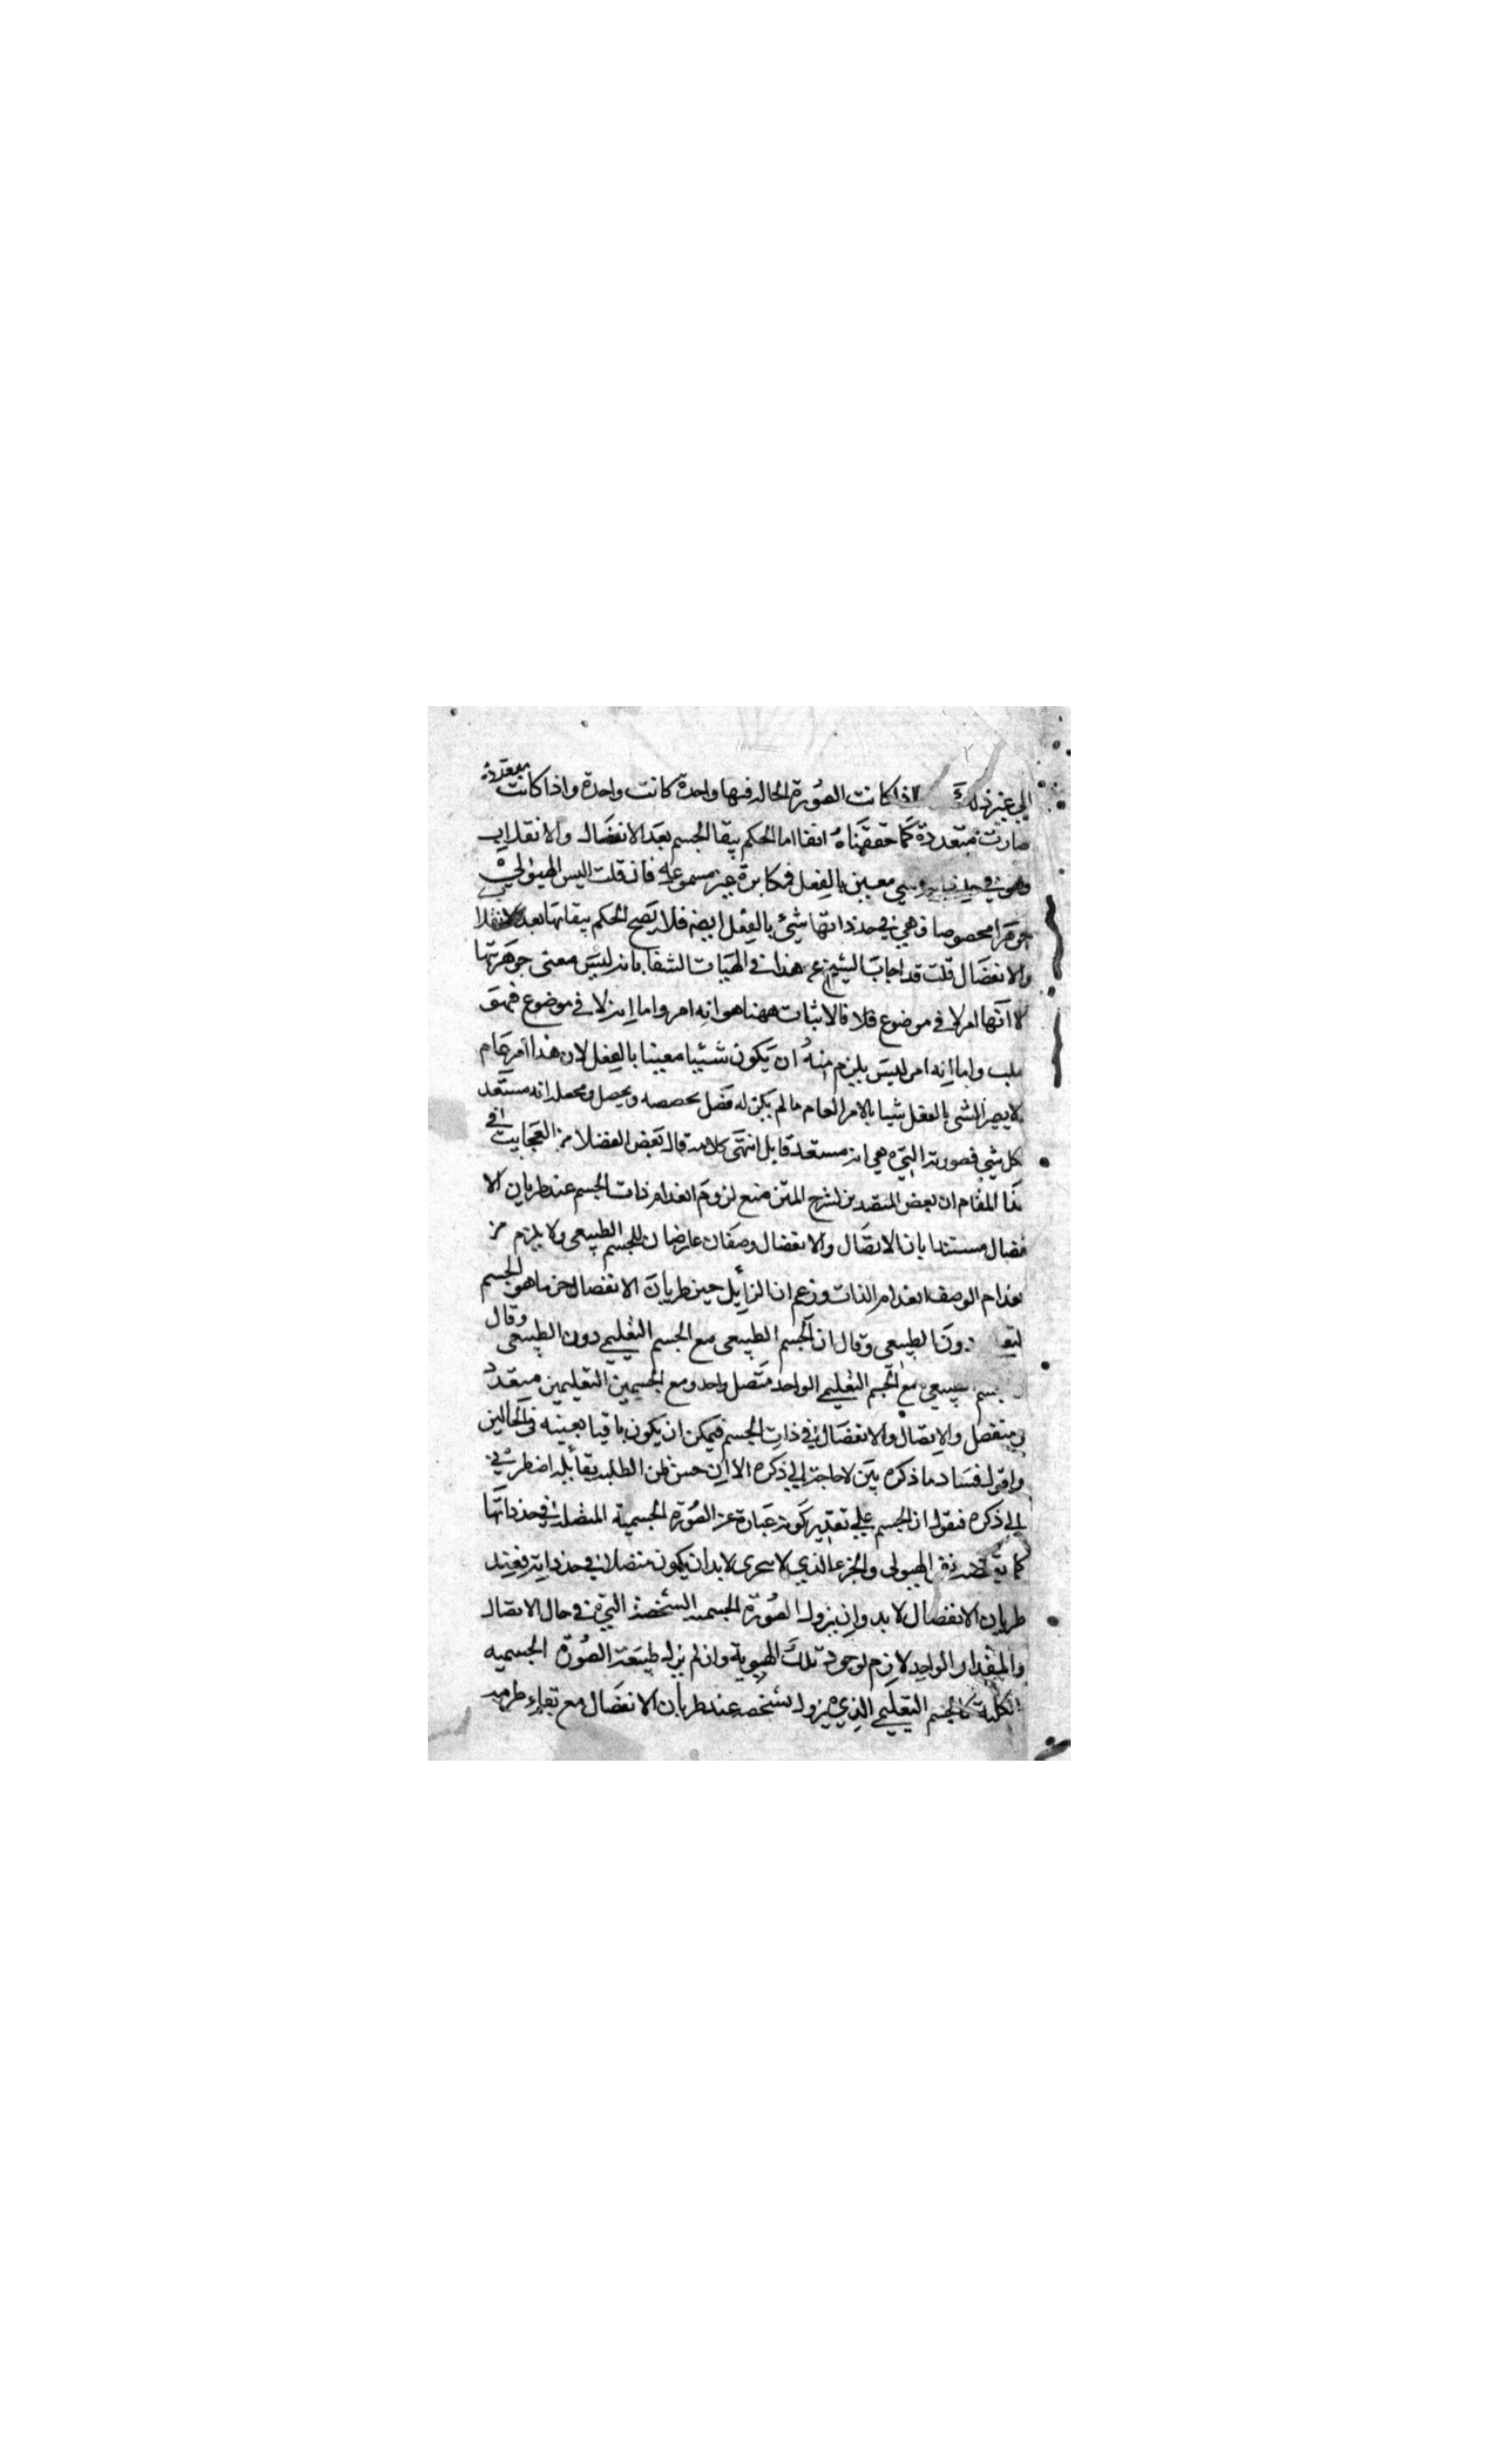 الي غير ذلك اذا كانت الصورة الحاله فيها واحدة كانت واحدة واذا كانت متعددة
صارت متعددة كما حققناه انفا اما الحكم ببقا الجسم بعد الانفصال والانقلاب
وهو في حد معين بالفعل فمكابرة غير مسموعه فان قلت اليس الهيولي
جوهرا مخصوصا فهي في حد ذاتها شئ بالفعل ايضه فلا يصح الحكم ببقائها بعد
والانفصال قلت قد اجاب الشيخ عن هذا في الهيات الشفا بانه ليس معنى جوهريتها
الا انها امر لا في موضوع فلا فالاثبات ههنا هو انه امر واما انه لا في موضوع فهو
سلب واما انه امر ليس يلزم منه ان يكون شيئا معينا بالفعل لان هذا امر عام
لا يصير الشي بالفعل شيا بالامر العام ما لم يكن له فصل يخصصه ويحصل انه مستعد
كل شي فصورته التي هي انه مستعد قابل انتهى كلامه قال بعض الفضلا من العجايب في
هذا المقام ان بعض المتصدين لشرح المتن منع لزوم انعدام ذات الجسم عند طريان الا
نفصال مستندا بان الاتصال والانفصال وصفان عارضان للجسم الطبيعي ولا يلزم من
انعدام الوصف انعدام الذات وزعم ان الزايل حين طريان الانفصال هو الجسم
دون الطبيعي وقال ان الجسم الطبيعي مع الجسم التعليمي دون الطبيعي وقال
مع الجسم التعليمي الواحد متصل واحد ومع الجسمين التعليمين متعدد
منفصل والاتصال والانفصال في ذات الجسم فيمكن ان يكون باقيا بعينه في الحالين
واقول فساد ما ذكره بين لا حاجة الي ذكره الا ان حسن ظن الطلبه بقائله اضطرني
الي ذكره فنقول ان الجسم علي تقدير كونه عبارة عن الصورة الجسمية المتصلة في حد ذاتها
كما الهيولى والجزء الذي لا يتجرى لا بد ان يكون متصلا في حد ذاته فعند
طريان الانفصال لا بد وان يزول الصورة الجسميه الشخصة التي في حال الاتصال
والمقدار الواحد لازم لوجود تلك الهيوية وان لم يزل طبيعة الصورة الجسميه
الكلية كالجسم التعليمي الذي يزول شخصه عند طريان الانفصال مع بقاء